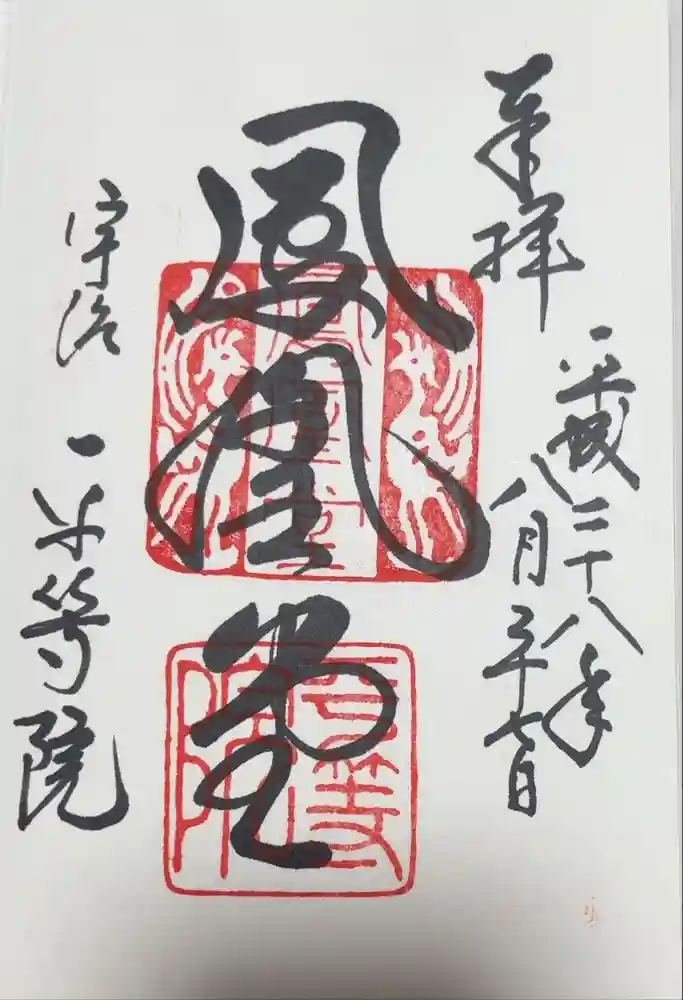 奉拝
平成二十八年
八月二十七日
鳳凰堂
平等院
宇治
平等院